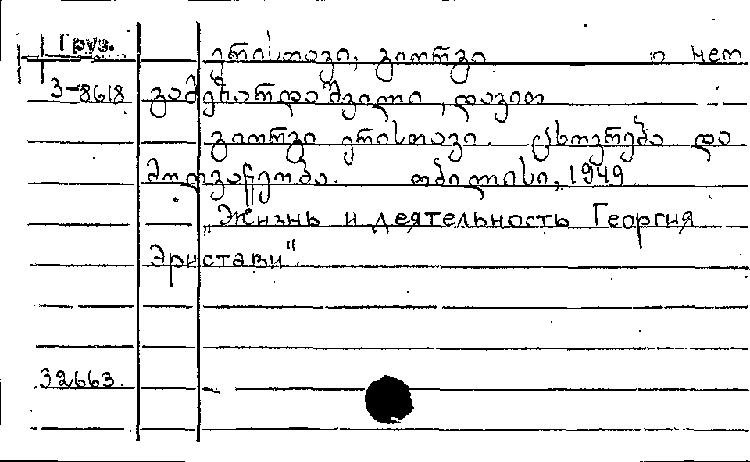 Груз.
ერისთავი, გიორგი о нем
3-8618 გამეზარდაშვილი, დავით
გიორგი ერისთავი. ცხოვრება და
მოღვაწეობა. თბილისი, 1949
„Жизнь и деятельность Георгия
Эристави"
32663.